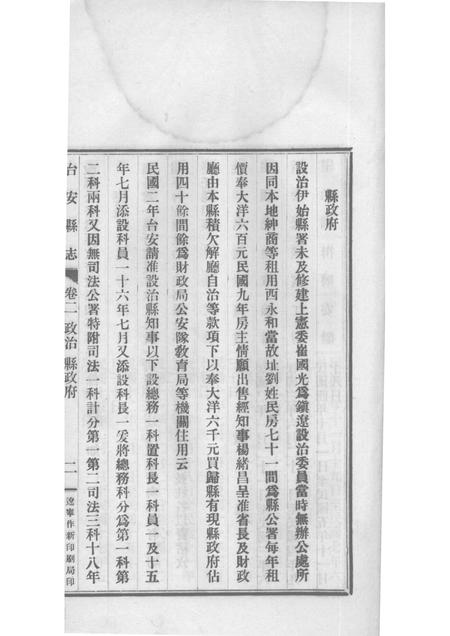 縣政府
設治伊始縣署未及修建上憲委崔國光爲鎭遼設治委員當時無辦公處所
因同本地紳商等租用西永和當故址劉姓民房七十一間爲縣公署每年租
價奉大洋六百元民國九年房主情願出售經知事楊緒昌呈准省長及財政
廳由本縣積欠解廳自治等款項下以奉大洋六千元買歸縣有現縣政府佔
用四十餘間餘爲財政局公安隊敎育局等機關住用云
民國二年台安請准設治縣知事以下設總務一科置科長一科員一及十五
年七月添設科員一十六年七月又添設科長一爰將總務科分爲第一科第
二科兩科又因無司法公署特附司法一科計分第一第二司法三科十八年
台安縣志 卷二 政治 縣政府 一
遼寧作新印刷局印